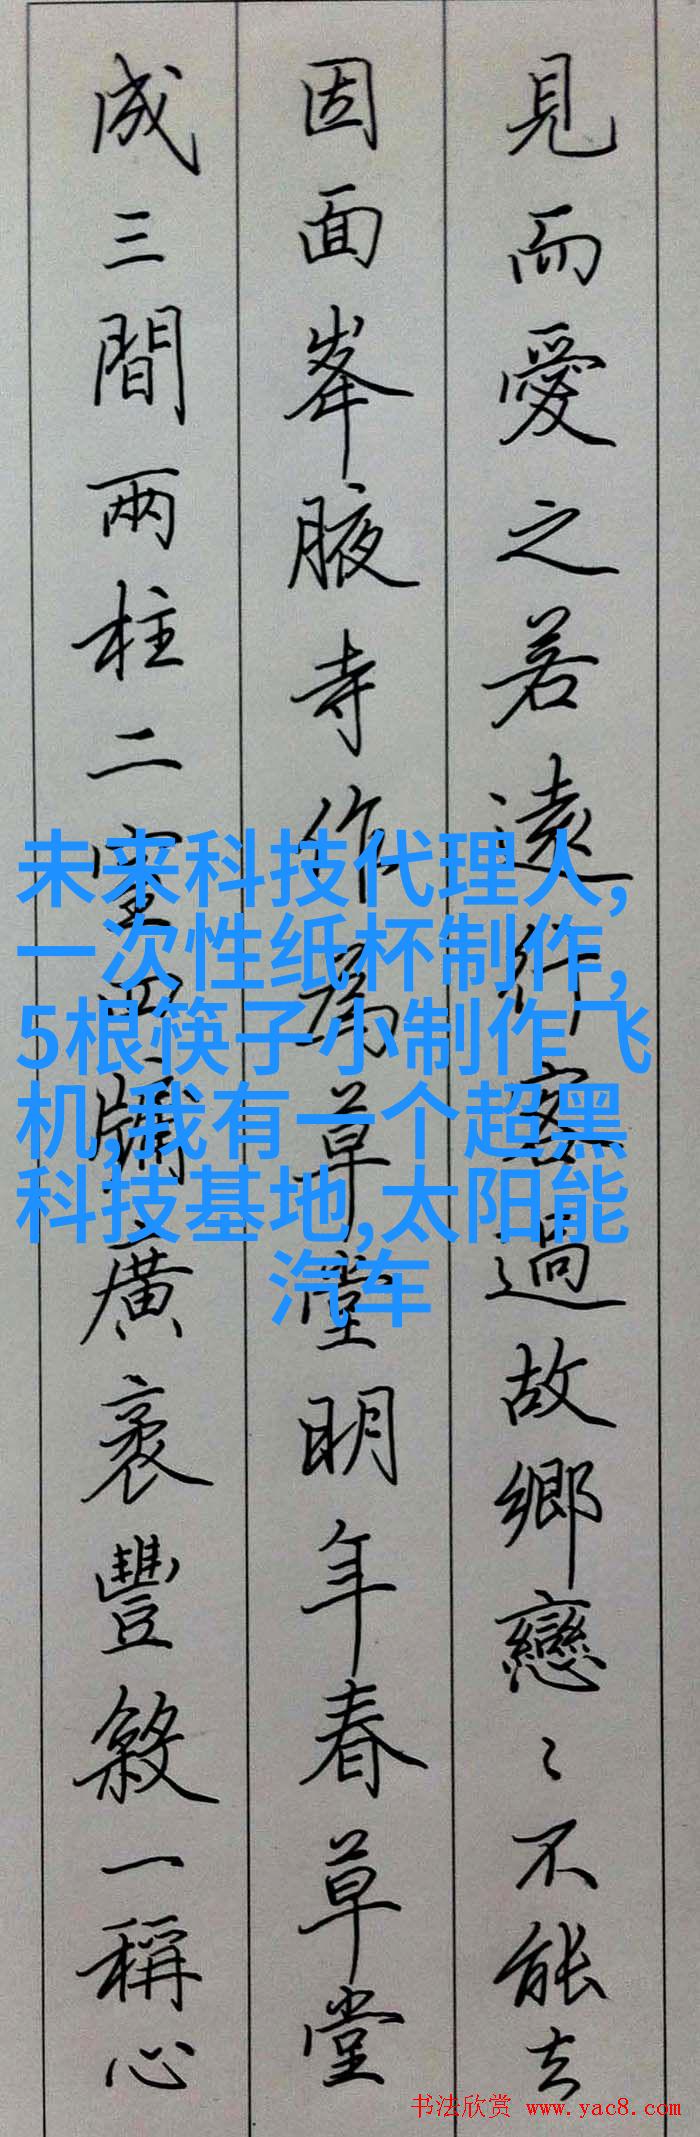 見而愛之若遠行客過故鄉戀〻不能去
因面峯腋寺作為草堂明年春草堂
成三間兩柱二室四牖廣袤豐殺一稱心
未来科技代理人,
一次性纸杯制作,
5根筷子小制作飞
机,我有一个超黑
科技基地,太阳能
汽车
书法欣赏 www.yac8.com